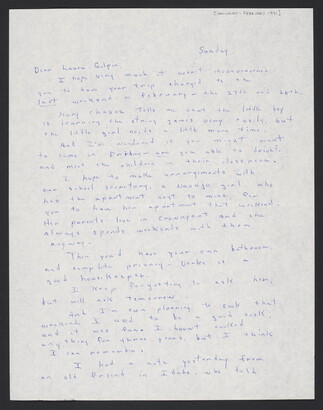 [JANUARY-FEBRUARY 1971]
Sunday
Dear Laura Gilpin,
I hope very much it won't inconvenience
you to have your trip changed to the
last weekend in February - the 27th and 28th.
Mary Chason tells me that the little boy
is learning the string games very easily, but
the little girl needs a little more time.
But I'm worried if you might want
to come in before you are able to
and meet the children in their classroom.
I hope to make arrangements with
our school secretary, a Navajo girl who
has the apartment next to mine, for
you to have her apartment that weekend.
Her parents live in Crownpoint and she
always spends weekends with them
anyway.
Then you'd have your own bathroom,
and complete privacy. is a
good housekeeper.
I keep forgetting to ask her,
but will ask tomorrow.
And I'm even planning to cook that
weekend. I used to be a good cook,
and it was fun. I haven't cooked
anything for three years, but I think
I can remember.
I had a note yesterday from
an old friend in Idaho, who told